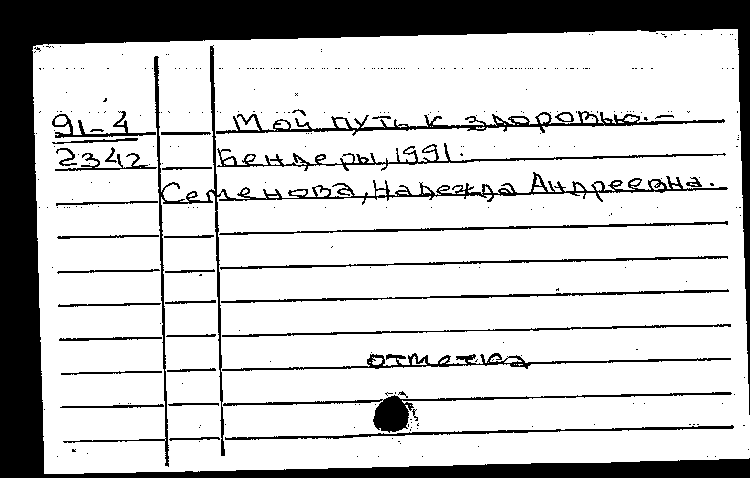 91-4 Мой путь к здоровью.-
2342 Бендеры, 1991.
Семенова, Надежда Андреевна.